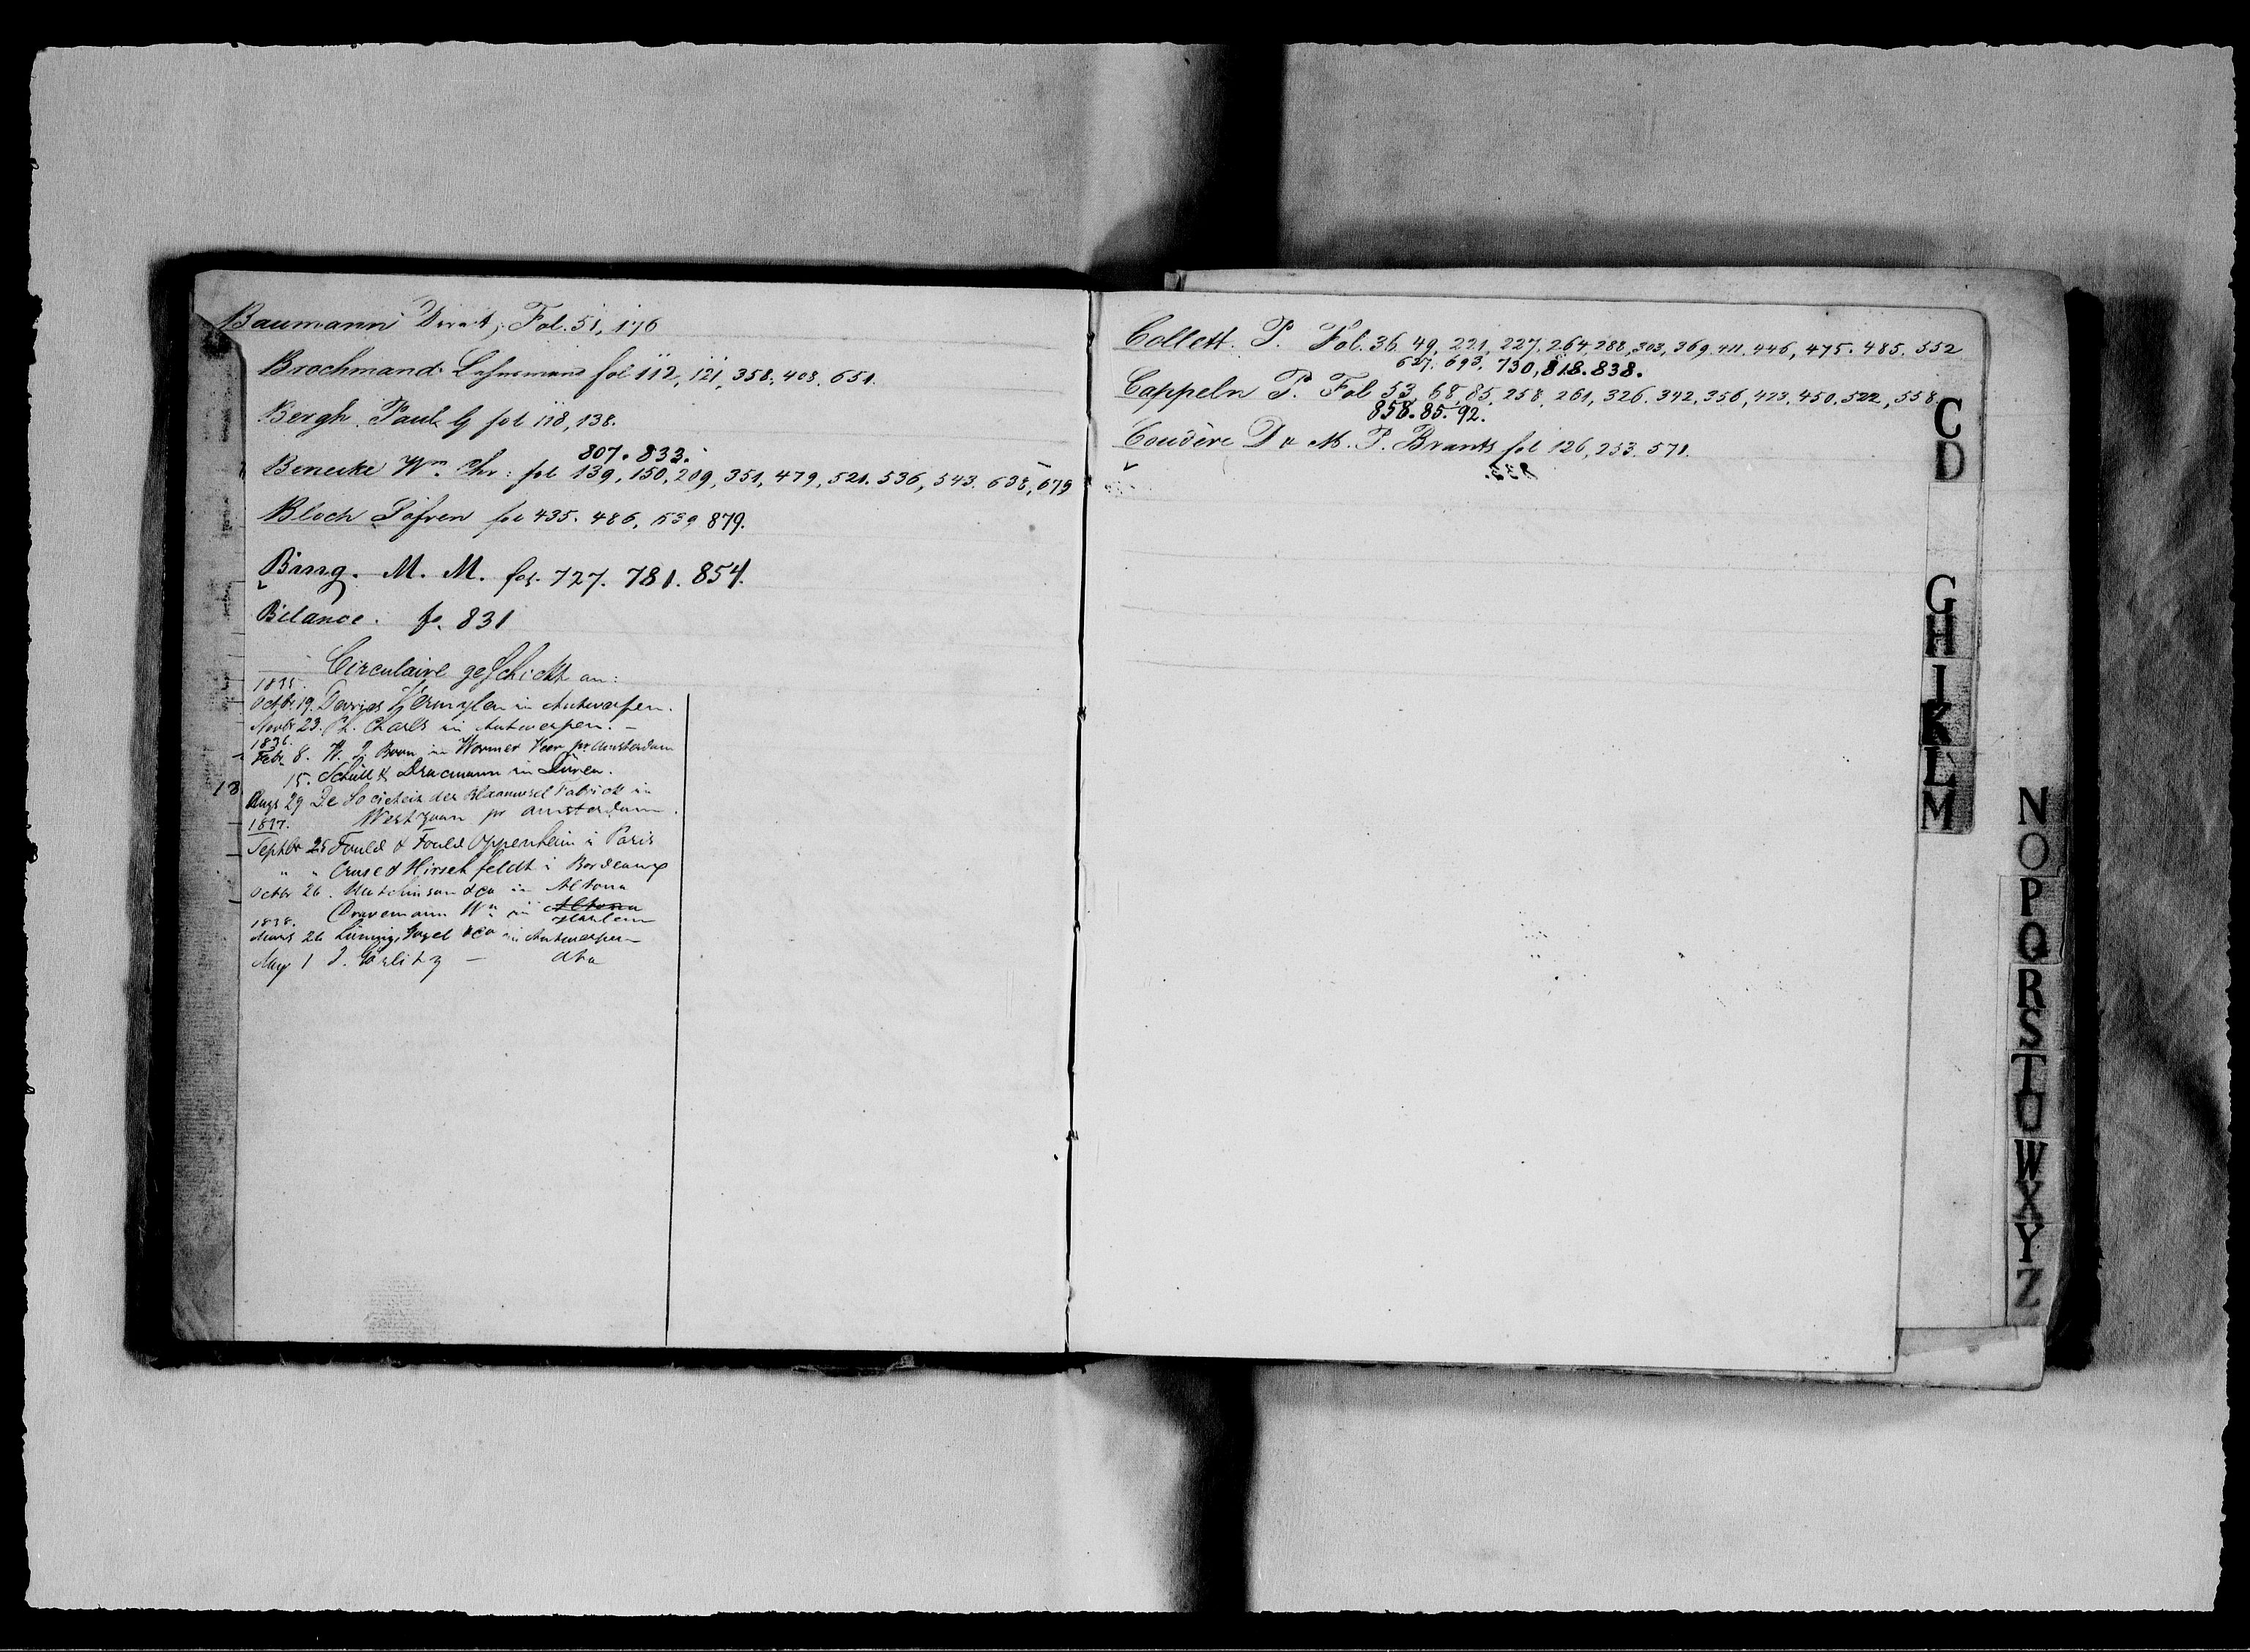 Baumann Direct, Fol. 51, 176
Brochmand fol 112, 121, 358, 408. 651.
Bergh. Paul G fol 118, 138.
807. 833.
Benecke Wm Chr: fol 139, 150, 209, 351, 479, 521. 536, 543. 638, 679
Bloch Löfven fol 435. 486, 539 879.
Bang. M. M. fol. 727. 781. 854.
Bilance. fo. 831
Circulaire geschickt an:
1835.
Octbr. 19. Vermylen in Antwerpen.
Novbr 23. Ph. Charls in Antwerpen. –
1836.
Febr 8. W. J. Boon in Wormer Veer pr Amsterdam
15. Schüll & in Düren.
18
Augs 29 De Societeit der Blaauwsel Fabriek in
1837. Westzaan pr Amsterdam.
Septbr 25 Fould & Fould Oppenheim à Paris
" " Cruse & Hirschfeldt à Bordeaux
Octbr 26. Hutchinson & Co in Altona
Dravemann Wm in Altona
1838. Haarlem
Marts 26 & Co in Antwerpen
May 1 J. Görlitz – dto
Collett. P. Fol. 36 49, 221, 227. 264, 288, 303, 369. 411. 446, 475. 485. 552
627. 693. 730, 818. 838.
Cappeln P. Fol 53, 68, 85, 258, 261, 326. 342, 356, 423, 450, 522, 558.
858. 85. 92.
Coudère D & M. P. Brants fol 126, 253. 571.
C
D
G
H
I
K
L
M
N
O
P
Q
R
S
T
U
W
X
Y
Z